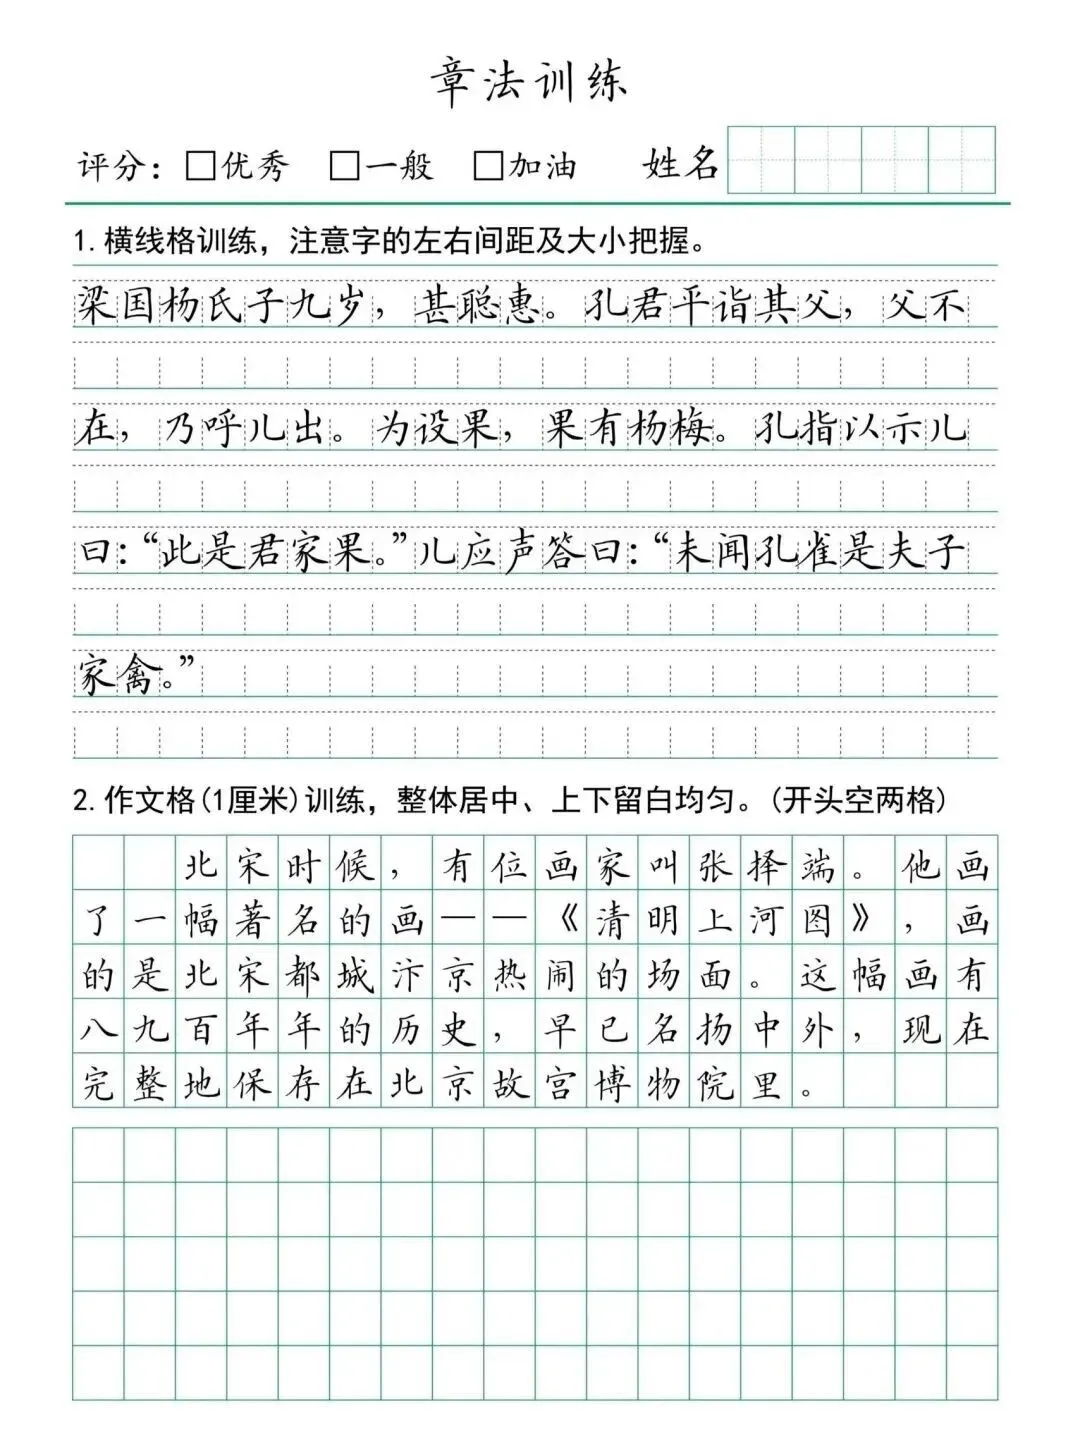 章法训练
评分：□优秀 □一般 □加油 姓名
1.横线格训练，注意字的左右间距及大小把握。
梁国杨氏子九岁，甚聪惠。孔君平诣其父，父不
在，乃呼儿出。为设果，果有杨梅。孔指以示儿
曰：“此是君家果。”儿应声答曰：“未闻孔雀是夫子
家禽。”
2.作文格(1厘米)训练，整体居中、上下留白均匀。(开头空两格)
北宋时候，有位画家叫张择端。他画
了一幅著名的画——《清明上河图》，画
的是北宋都城汴京热闹的场面。这幅画有
八九百年年的历史，早已名扬中外，现在
完整地保存在北京故宫博物院里。